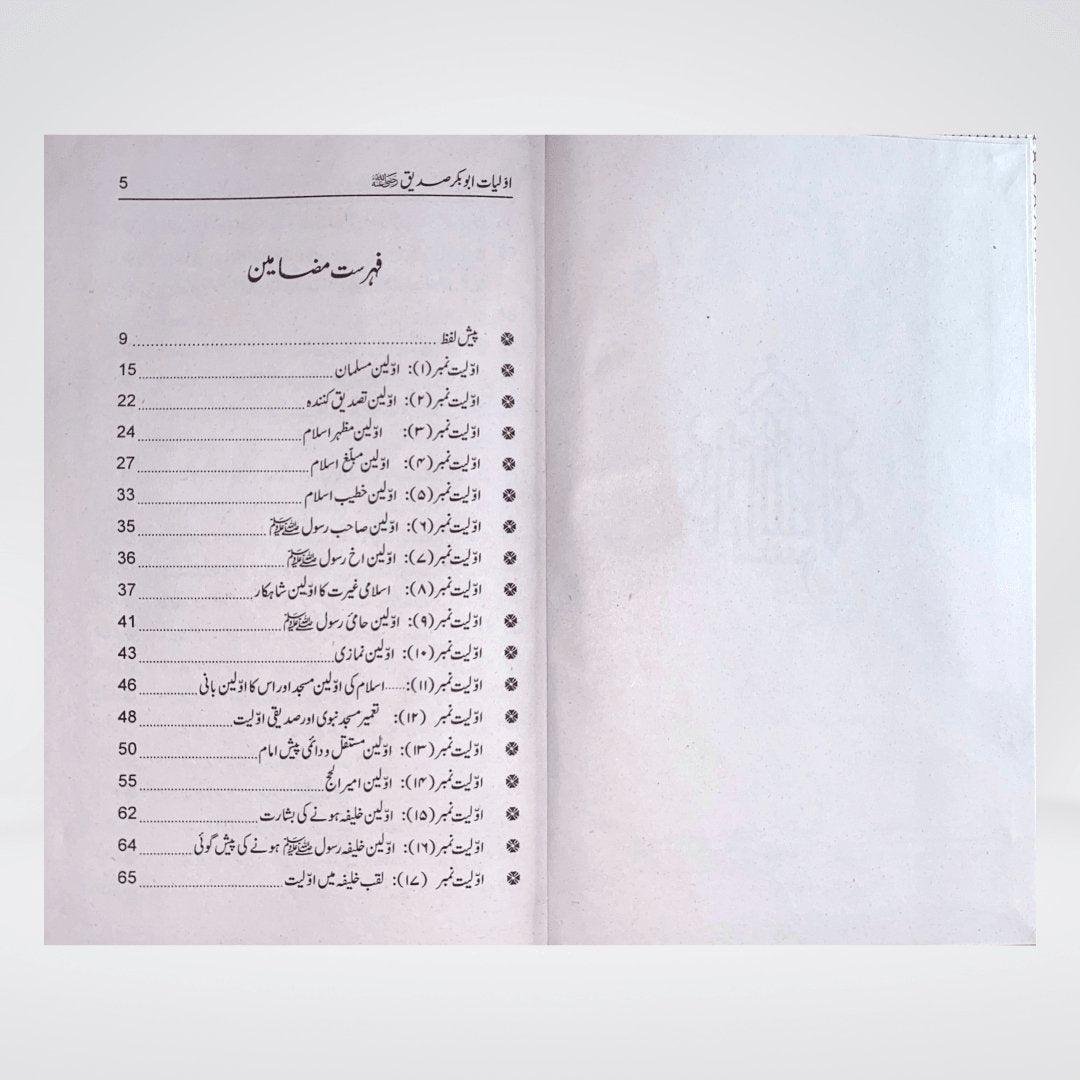 اوّلیات ابوبکر صدیق رضی اللہ عنہ 5
فہرست مضامین
پیش لفظ 9
اوّلیت نمبر (۱): اوّلین مسلمان 15
اوّلیت نمبر (۲): اوّلین تصدیق کنندہ 22
اوّلیت نمبر (۳): اوّلین مظہر اسلام 24
اوّلیت نمبر (۴): اوّلین مبلّغ اسلام 27
اوّلیت نمبر (۵): اوّلین خطیب اسلام 33
اوّلیت نمبر (۶): اوّلین صاحب رسول ﷺ 35
اوّلیت نمبر (۷): اوّلین اخ رسول ﷺ 36
اوّلیت نمبر (۸): اسلامی غیرت کا اوّلین شاہکار 37
اوّلیت نمبر (۹): اوّلین حامئ رسول ﷺ 41
اوّلیت نمبر (۱۰): اوّلین نمازی 43
اوّلیت نمبر (۱۱): اسلام کی اوّلین مسجد اور اس کا اوّلین بانی 46
اوّلیت نمبر (۱۲): تعمیر مسجد نبوی اور صدیقی اوّلیت 48
اوّلیت نمبر (۱۳): اوّلین مستقل و دائمی پیش امام 50
اوّلیت نمبر (۱۴): اوّلین امیر الحج 55
اوّلیت نمبر (۱۵): اوّلین خلیفہ ہونے کی بشارت 62
اوّلیت نمبر (۱۶): اوّلین خلیفہ رسول ﷺ ہونے کی پیش گوئی 64
اوّلیت نمبر (۱۷): لقب خلیفہ میں اوّلیت 65